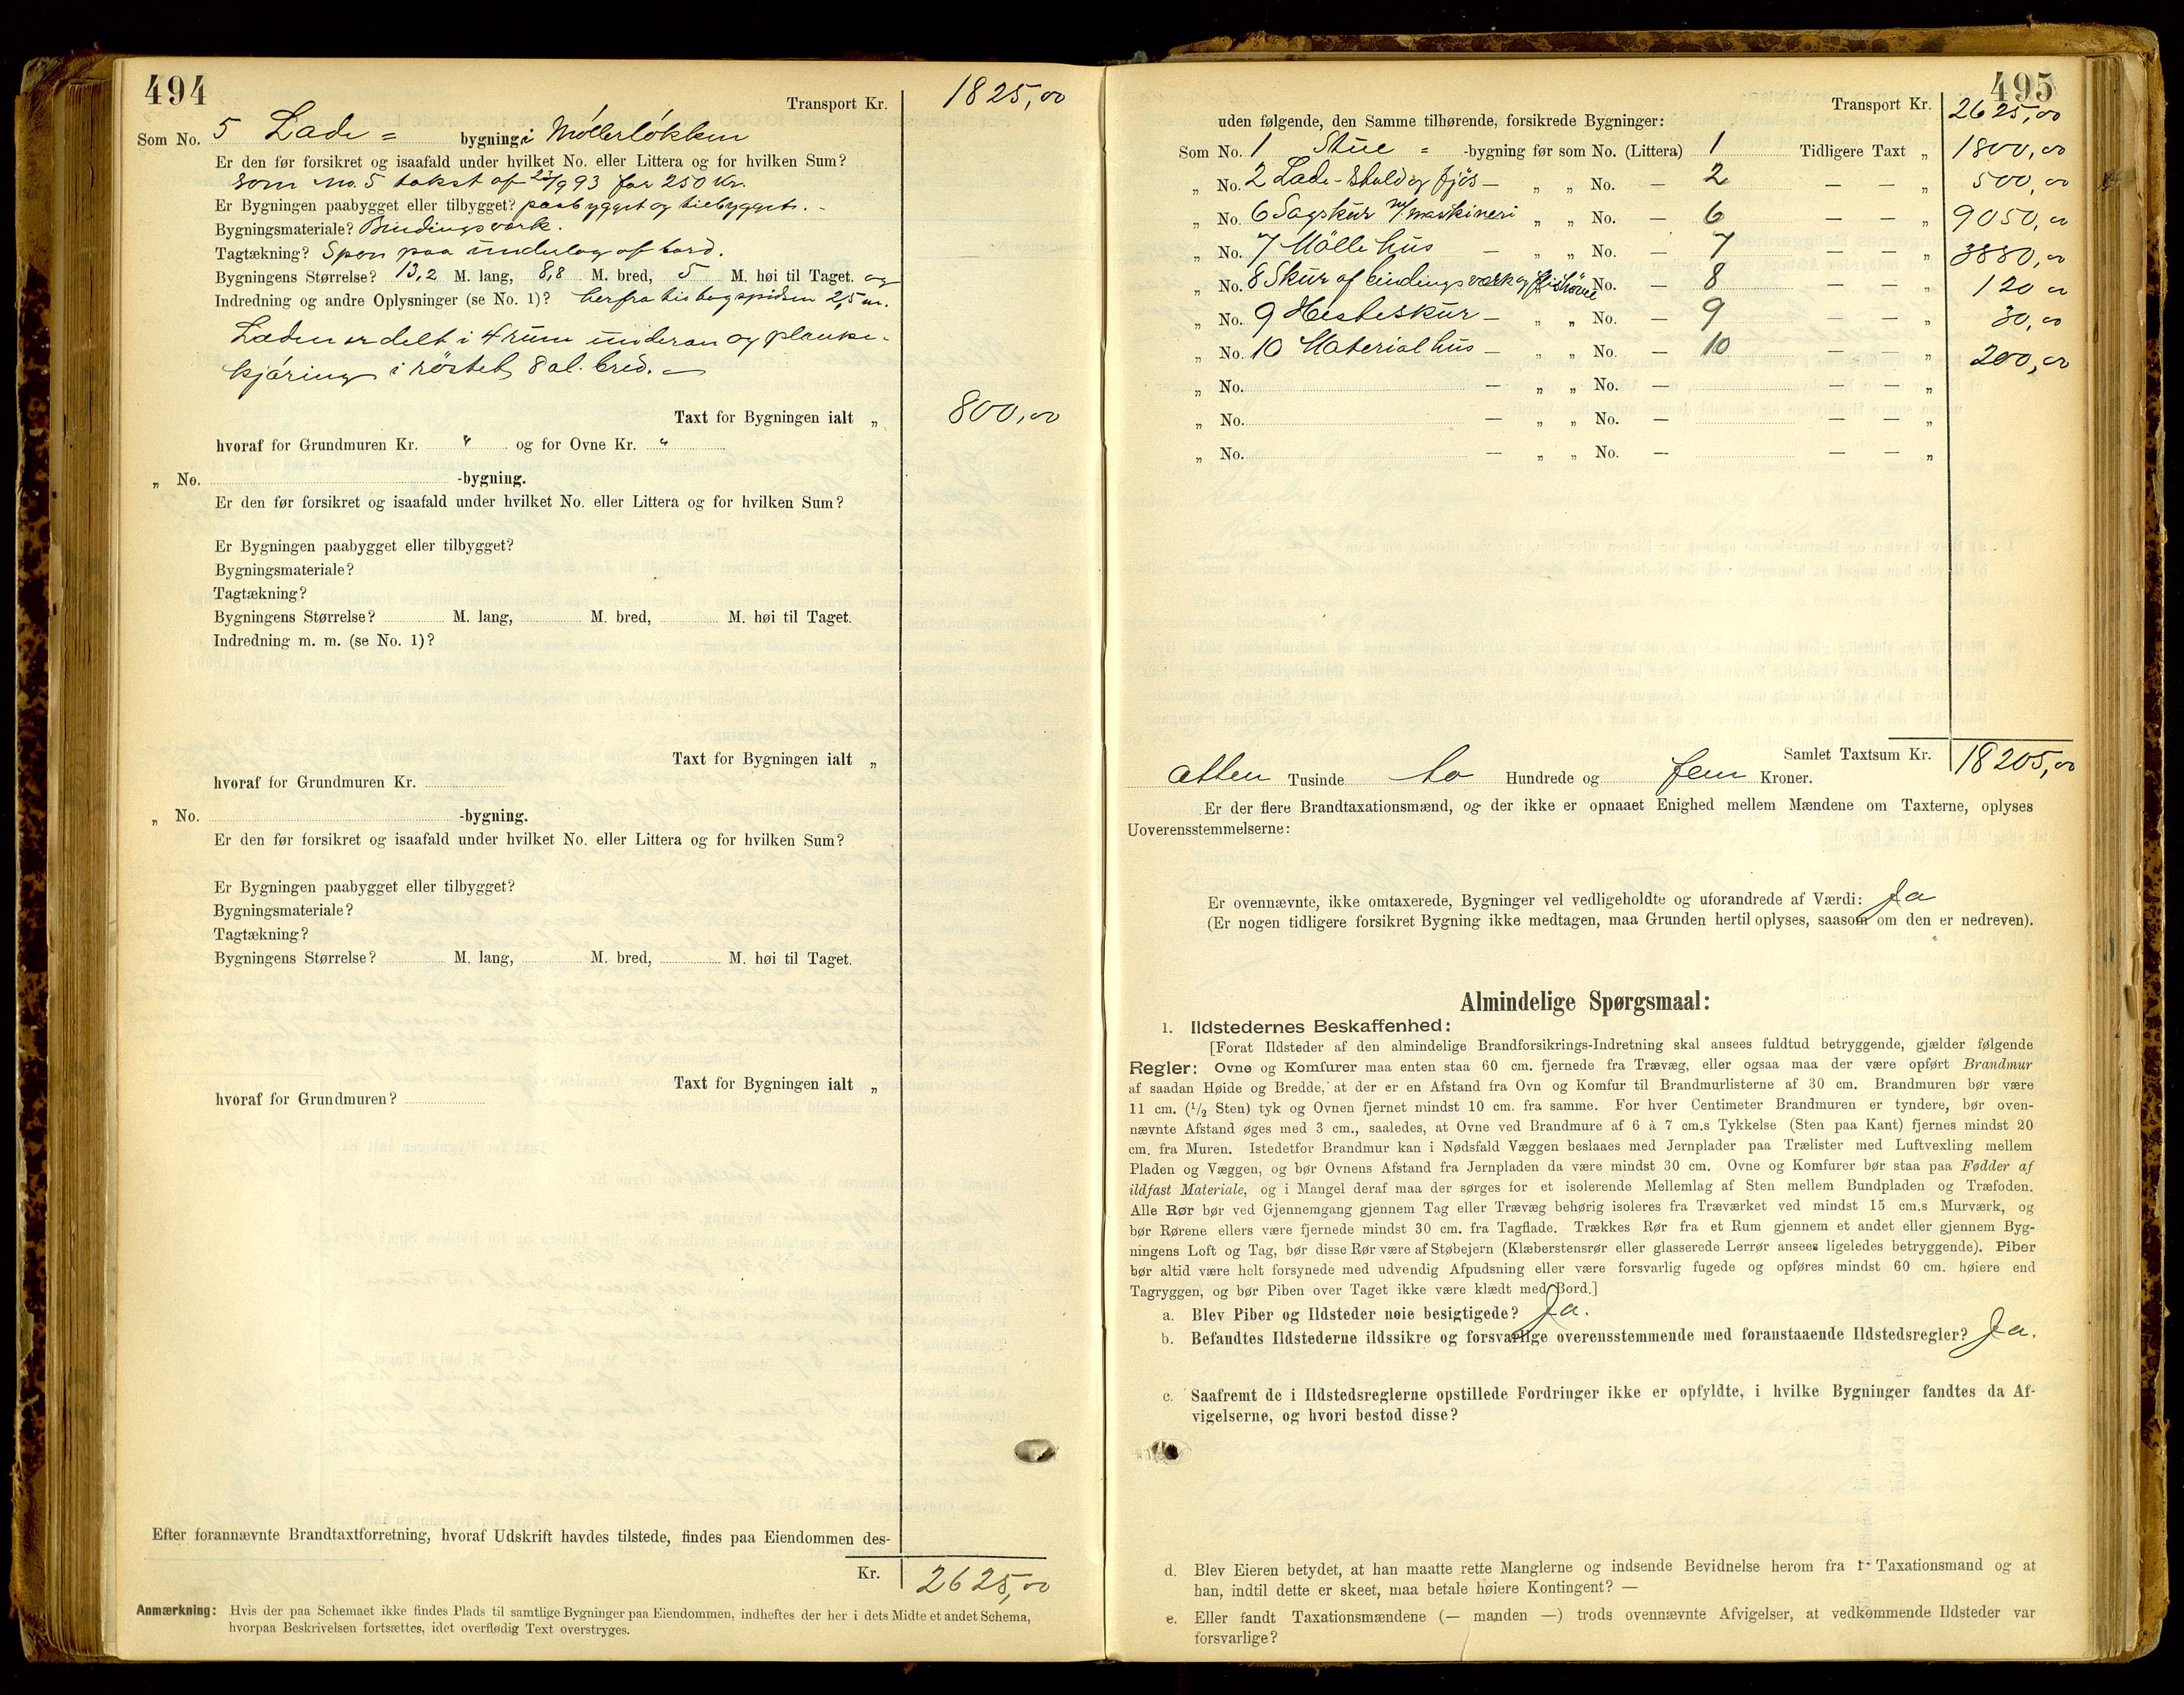 494
Transport Kr. 1825,00
Som No. 5 Lade = bygning i Möllerlökken
Er den før forsikret og isaafald under hvilket No. eller Littera og for hvilken Sum?
som No. 5 takst af 23/9 93 for 250 Kr.
Er Bygningen paabygget eller tilbygget? paabygget og tilbygget. -
Bygningsmateriale? Bindingsværk.
Tagtækning? Spon paa underlag af bord.
Bygningens Størrelse? 13,2 M. lang, 8,8 M. bred, 5 M. høi til Taget. og
Indredning og andre Oplysninger (se No. 1)? herfra til tagspidsen 2,5 m.
Laden er delt i 4 rum underan og planke-
kjöring i röstet, 8 al. bred. -
Taxt for Bygningen ialt „ 800,00
hvoraf for Grundmuren Kr. " og for Ovne Kr. "
„ No. -bygning.
Er den før forsikret og isaafald under hvilket No. eller Littera og for hvilken Sum?
Er Bygningen paabygget eller tilbygget?
Bygningsmateriale?
Tagtækning?
Bygningens Størrelse? M. lang, M. bred, M. høi til Taget.
Indredning m. m. (se No. 1)?
Taxt for Bygningen ialt „
hvoraf for Grundmuren Kr.
„ No. -bygning.
Er den før forsikret og isaafald under hvilket No. eller Littera og for hvilken Sum?
Er Bygningen paabygget eller tilbygget?
Bygningsmateriale?
Tagtækning?
Bygningens Størrelse? M. lang, M. bred, M. høi til Taget.
Taxt for Bygningen ialt „
hvoraf for Grundmuren?
Efter forannævnte Brandtaxtforretning, hvoraf Udskrift havdes tilstede, findes paa Eiendommen des-
Kr. 2625,00
Anmærkning: Hvis der paa Schemaet ikke findes Plads til samtlige Bygninger paa Eiendommen, indheftes der her i dets Midte et andet Schema,
hvorpaa Beskrivelsen fortsættes, idet overflødig Text overstryges.
495
Transport Kr. 2625,00
uden følgende, den Samme tilhørende, forsikrede Bygninger:
Som No. 1 Stue = -bygning før som No. (Littera) 1 Tidligere Taxt „ 1800,00
„ No. 2 Lade- Stald og fjös — „ „ No. — 2 — — „ 500,00
„ No. 6 Sagskur m/ maskineri „ „ No. — 6 — — „ 9050,00
„ No. 7 Mölle hus — „ „ No. — 7 — — „ 3880,00
„ No. 8 Skur af bindingsværk og flishövle No. — 8 — — „ 120 00
„ No. 9 Hesteskur — „ „ No. — 9 — — „ 30,00
„ No. 10 Material hus — „ „ No. — 10 — — „ 200,00
„ No. — „ „ No. — — — „
„ No. — „ „ No. — — — „
„ No. — „ „ No. — — — „
Samlet Taxtsum Kr. 18205,00
atten Tusinde to Hundrede og fem Kroner.
Er der flere Brandtaxationsmænd, og der ikke er opnaaet Enighed mellem Mændene om Taxterne, oplyses
Uoverensstemmelserne:
Er ovennævnte, ikke omtaxerede, Bygninger vel vedligeholdte og uforandrede af Værdi: Ja
(Er nogen tidligere forsikret Bygning ikke medtagen, maa Grunden hertil oplyses, saasom om den er nedreven).
Almindelige Spørgsmaal:
1. Ildstedernes Beskaffenhed:
[Forat Ildsteder af den almindelige Brandforsikrings-Indretning skal ansees fuldtud betryggende, gjælder følgende
Regler: Ovne og Komfurer maa enten staa 60 cm. fjernede fra Trævæg, eller ogsaa maa der være opført Brandmur
af saadan Høide og Bredde, at der er en Afstand fra Ovn og Komfur til Brandmurlisterne af 30 cm. Brandmuren bør være
11 cm. (1/2 Sten) tyk og Ovnen fjernet mindst 10 cm. fra samme. For hver Centimeter Brandmuren er tyndere, bør oven-
nævnte Afstand øges med 3 cm., saaledes, at Ovne ved Brandmure af 6 à 7 cm.s Tykkelse (Sten paa Kant) fjernes mindst 20
cm. fra Muren. Istedetfor Brandmur kan i Nødsfald Væggen beslaaes med Jernplader paa Trælister med Luftvexling mellem
Pladen og Væggen, og bør Ovnens Afstand fra Jernpladen da være mindst 30 cm. Ovne og Komfurer bør staa paa Fødder af
ildfast Materiale, og i Mangel deraf maa der sørges for et isolerende Mellemlag af Sten mellem Bundpladen og Træfoden.
Alle Rør bør ved Gjennemgang gjennem Tag eller Trævæg behørig isoleres fra Træværket ved mindst 15 cm.s Murværk, og
bør Rørene ellers være fjernede mindst 30 cm. fra Tagflade. Trækkes Rør fra et Rum gjennem et andet eller gjennem Byg-
ningens Loft og Tag, bør disse Rør være af Støbejern (Klæberstensrør eller glasserede Lerrør ansees ligeledes betryggende). Piber
bør altid være helt forsynede med udvendig Afpudsning eller være forsvarlig fugede og opføres mindst 60 cm. høiere end
Tagryggen, og bør Piben over Taget ikke være klædt med Bord.]
a. Blev Piber og Ildsteder nøie besigtigede? Ja.
b. Befandtes Ildstederne ildssikre og forsvarlige overensstemmende med foranstaaende Ildstedsregler? Ja.
c. Saafremt de i Ildstedsreglerne opstillede Fordringer ikke er opfyldte, i hvilke Bygninger fandtes da Af-
vigelserne, og hvori bestod disse?
d. Blev Eieren betydet, at han maatte rette Manglerne og indsende Bevidnelse herom fra 1 Taxationsmand og at
han, indtil dette er skeet, maa betale høiere Kontingent? —
e. Eller fandt Taxationsmændene (— manden —) trods ovennævnte Afvigelser, at vedkommende Ildsteder var
forsvarlige?